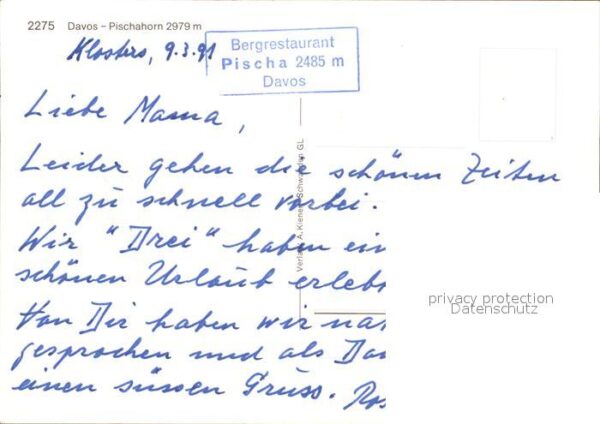 2275 Davos – Pischahorn 2979 m
Klosters, 9.3.91
Bergrestaurant
Pischa 2485 m
Davos
Liebe Mama,
Leider gehen die schönen Zeiten
all zu schnell vorbei.
Wir "Drei" haben ein
schönen Urlaub erleb
Von Dir haben wir na
gesprochen und als Da
einen süssen Gruss. Ros
Verlag A. Kiene Schwanden GL
privacy protection
Datenschutz